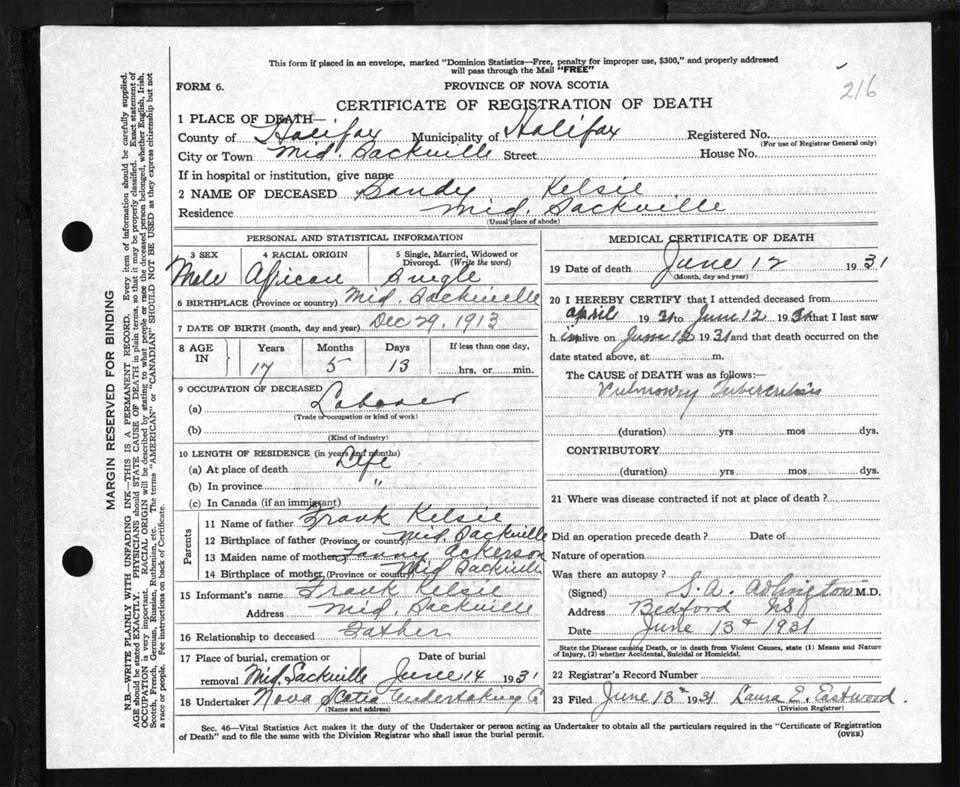 This form if placed in an envelope, marked "Dominion Statistics—Free, penalty for improper use, $300," and properly addressed
will pass through the Mail "FREE"
216
FORM 6.
PROVINCE OF NOVA SCOTIA
CERTIFICATE OF REGISTRATION OF DEATH
1 PLACE OF DEATH—
County of Halifax Municipality of Halifax Registered No.
(For use of Registrar General only)
City or Town Mid. Sackville Street House No.
If in hospital or institution, give name
2 NAME OF DECEASED Bandy Kelsie
Residence Mid. Sackville
(Usual place of abode)
PERSONAL AND STATISTICAL INFORMATION
3 SEX 4 RACIAL ORIGIN 5 Single, Married, Widowed or
Divorced. (Write the word)
Male African Single
6 BIRTHPLACE (Province or country) Mid. Sackville
7 DATE OF BIRTH (month, day and year) Dec 29, 1913
8 AGE IN Years Months Days If less than one day,
17 5 13 hrs. or min.
9 OCCUPATION OF DECEASED
(a) Laborer
(Trade or occupation or kind of work)
(b)
(Kind of industry)
10 LENGTH OF RESIDENCE (in years and months)
(a) At place of death Life
(b) In province "
(c) In Canada (if an immigrant)
Parents
11 Name of father Frank Kelsie
12 Birthplace of father (Province or country) Mid. Sackville
13 Maiden name of mother Fanny Ackerson
14 Birthplace of mother (Province or country) Mid Sackville
15 Informant's name Frank Kelsie
Address Mid. Sackville
16 Relationship to deceased Father
17 Place of burial, cremation or Date of burial
removal Mid. Sackville June 14 1931
18 Undertaker Nova Scotia Undertaking Co
(Name and address)
MEDICAL CERTIFICATE OF DEATH
19 Date of death June 12 1931
(Month, day and year)
20 I HEREBY CERTIFY that I attended deceased from
April 1931 to June 12 1931 that I last saw
him alive on June 12 1931 and that death occurred on the
date stated above, at m.
The CAUSE of DEATH was as follows:—
Pulmonary Tuberculosis
(duration) yrs mos dys.
CONTRIBUTORY
(duration) yrs mos dys.
21 Where was disease contracted if not at place of death?
Did an operation precede death? Date of
Nature of operation
Was there an autopsy?
(Signed) S. A. Adlington M.D.
Address Bedford NS
Date June 13th 1931
State the Disease causing Death, or in death from Violent Causes, state (1) Means and Nature
of Injury, (2) whether Accidental, Suicidal or Homicidal.
22 Registrar's Record Number
23 Filed June 13th 1931 Laura E. Eastwood.
(Division Registrar)
Sec. 46—Vital Statistics Act makes it the duty of the Undertaker or person acting as Undertaker to obtain all the particulars required in the "Certificate of Registration
of Death" and to file the same with the Division Registrar who shall issue the burial permit.
(OVER)
MARGIN RESERVED FOR BINDING
N.B.—WRITE PLAINLY WITH UNFADING INK—THIS IS A PERMANENT RECORD. Every item of information should be carefully supplied.
AGE should be stated EXACTLY. PHYSICIANS should STATE CAUSE OF DEATH in plain terms, so that it may be properly classified. Exact statement of
OCCUPATION is very important. RACIAL ORIGIN will be described by stating to what people or race the deceased person belonged, whether English, Irish,
Scotch, French, German, Russian, Ruthenian, etc. The terms "AMERICAN" or "CANADIAN" SHOULD NOT BE USED as they express citizenship but not
a race or people. See instructions on back of Certificate.